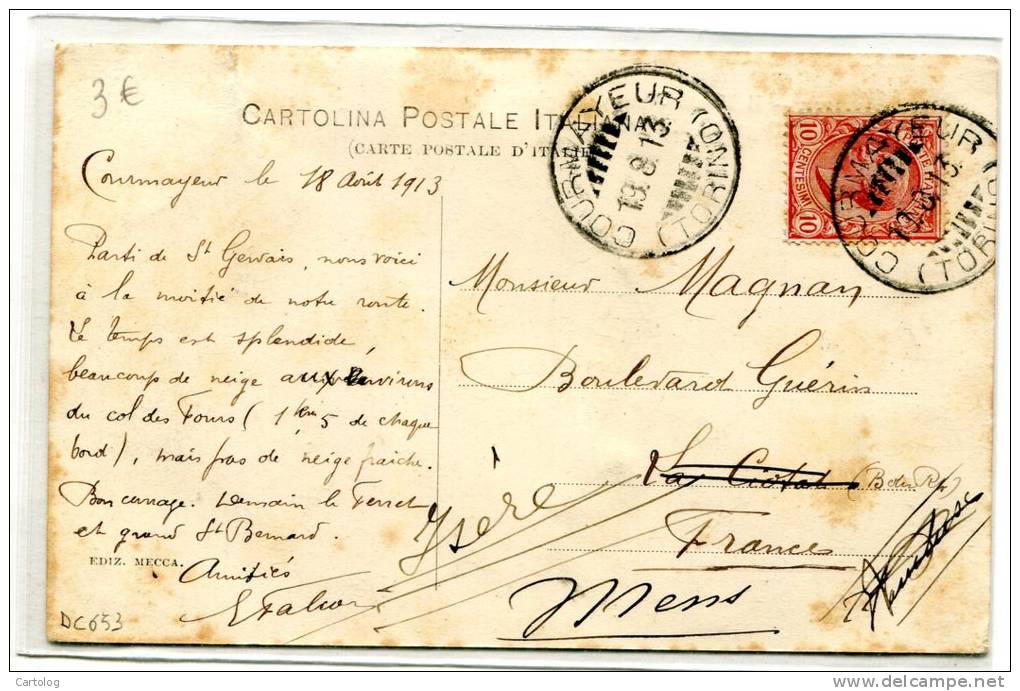 3 €
CARTOLINA POSTALE ITALIANA
(CARTE POSTALE D'ITALIE
COURMAYEUR (TORINO)
19.8.13
POSTE ITALIANE
CENTESIMI
10
10
COURMAYEUR (TORINO)
19.8.13
Courmayeur le 18 Août 1913
Parti de St Gervais, nous voici
à la moitié de notre route.
Le temps est splendide,
beaucoup de neige aux environs
du col des Fours (1 km 5 de chaque
bord), mais pas de neige fraîche.
Bon cannage. Demain le Ferret
et grand St Bernard.
Amitiés
EDIZ. MECCA.
DC653
Monsieur Magnan
Boulevard Guérin
La Ciotat (B du Rh)
France
Isère
Mens
Cartolog
www.delcampe.net